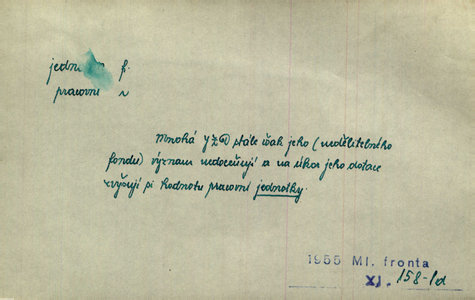 f.
pracovní v
Mnohá JZD stále však jeho (nedělitelného
fondu) význam nedoceňují a na úkor jeho dotace
zvyšují si hodnotu pracovní jednotky.
1955 Ml. fronta
XI. 158-1d